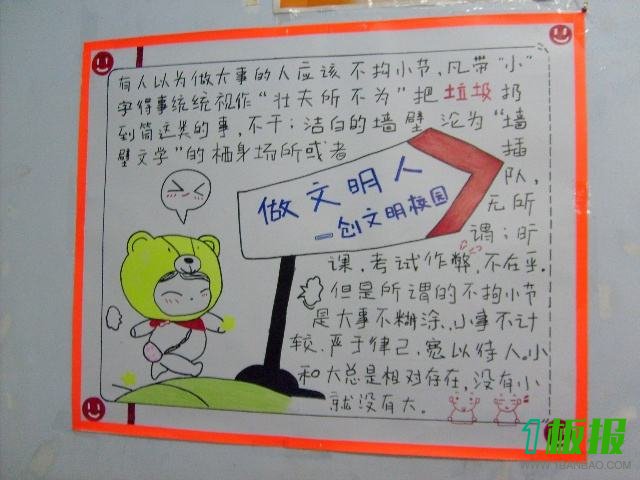 有人以为做大事的人应该不拘小节,凡带"小"
字得事统统视作"壮夫所不为"把垃圾扔
到筒这类的事,不干;洁白的墙壁沦为"墙
壁文学"的栖身场所或者
插
队,
无所
谓;旷
课,考试作弊,不在乎.
但是所谓的不拘小节
是大事不糊涂、小事不计
较、严于律己,宽以待人。小
和大总是相对存在,没有小
就没有大。
做文明人
—创文明校园
1板报
WWW.1BANBAO.COM